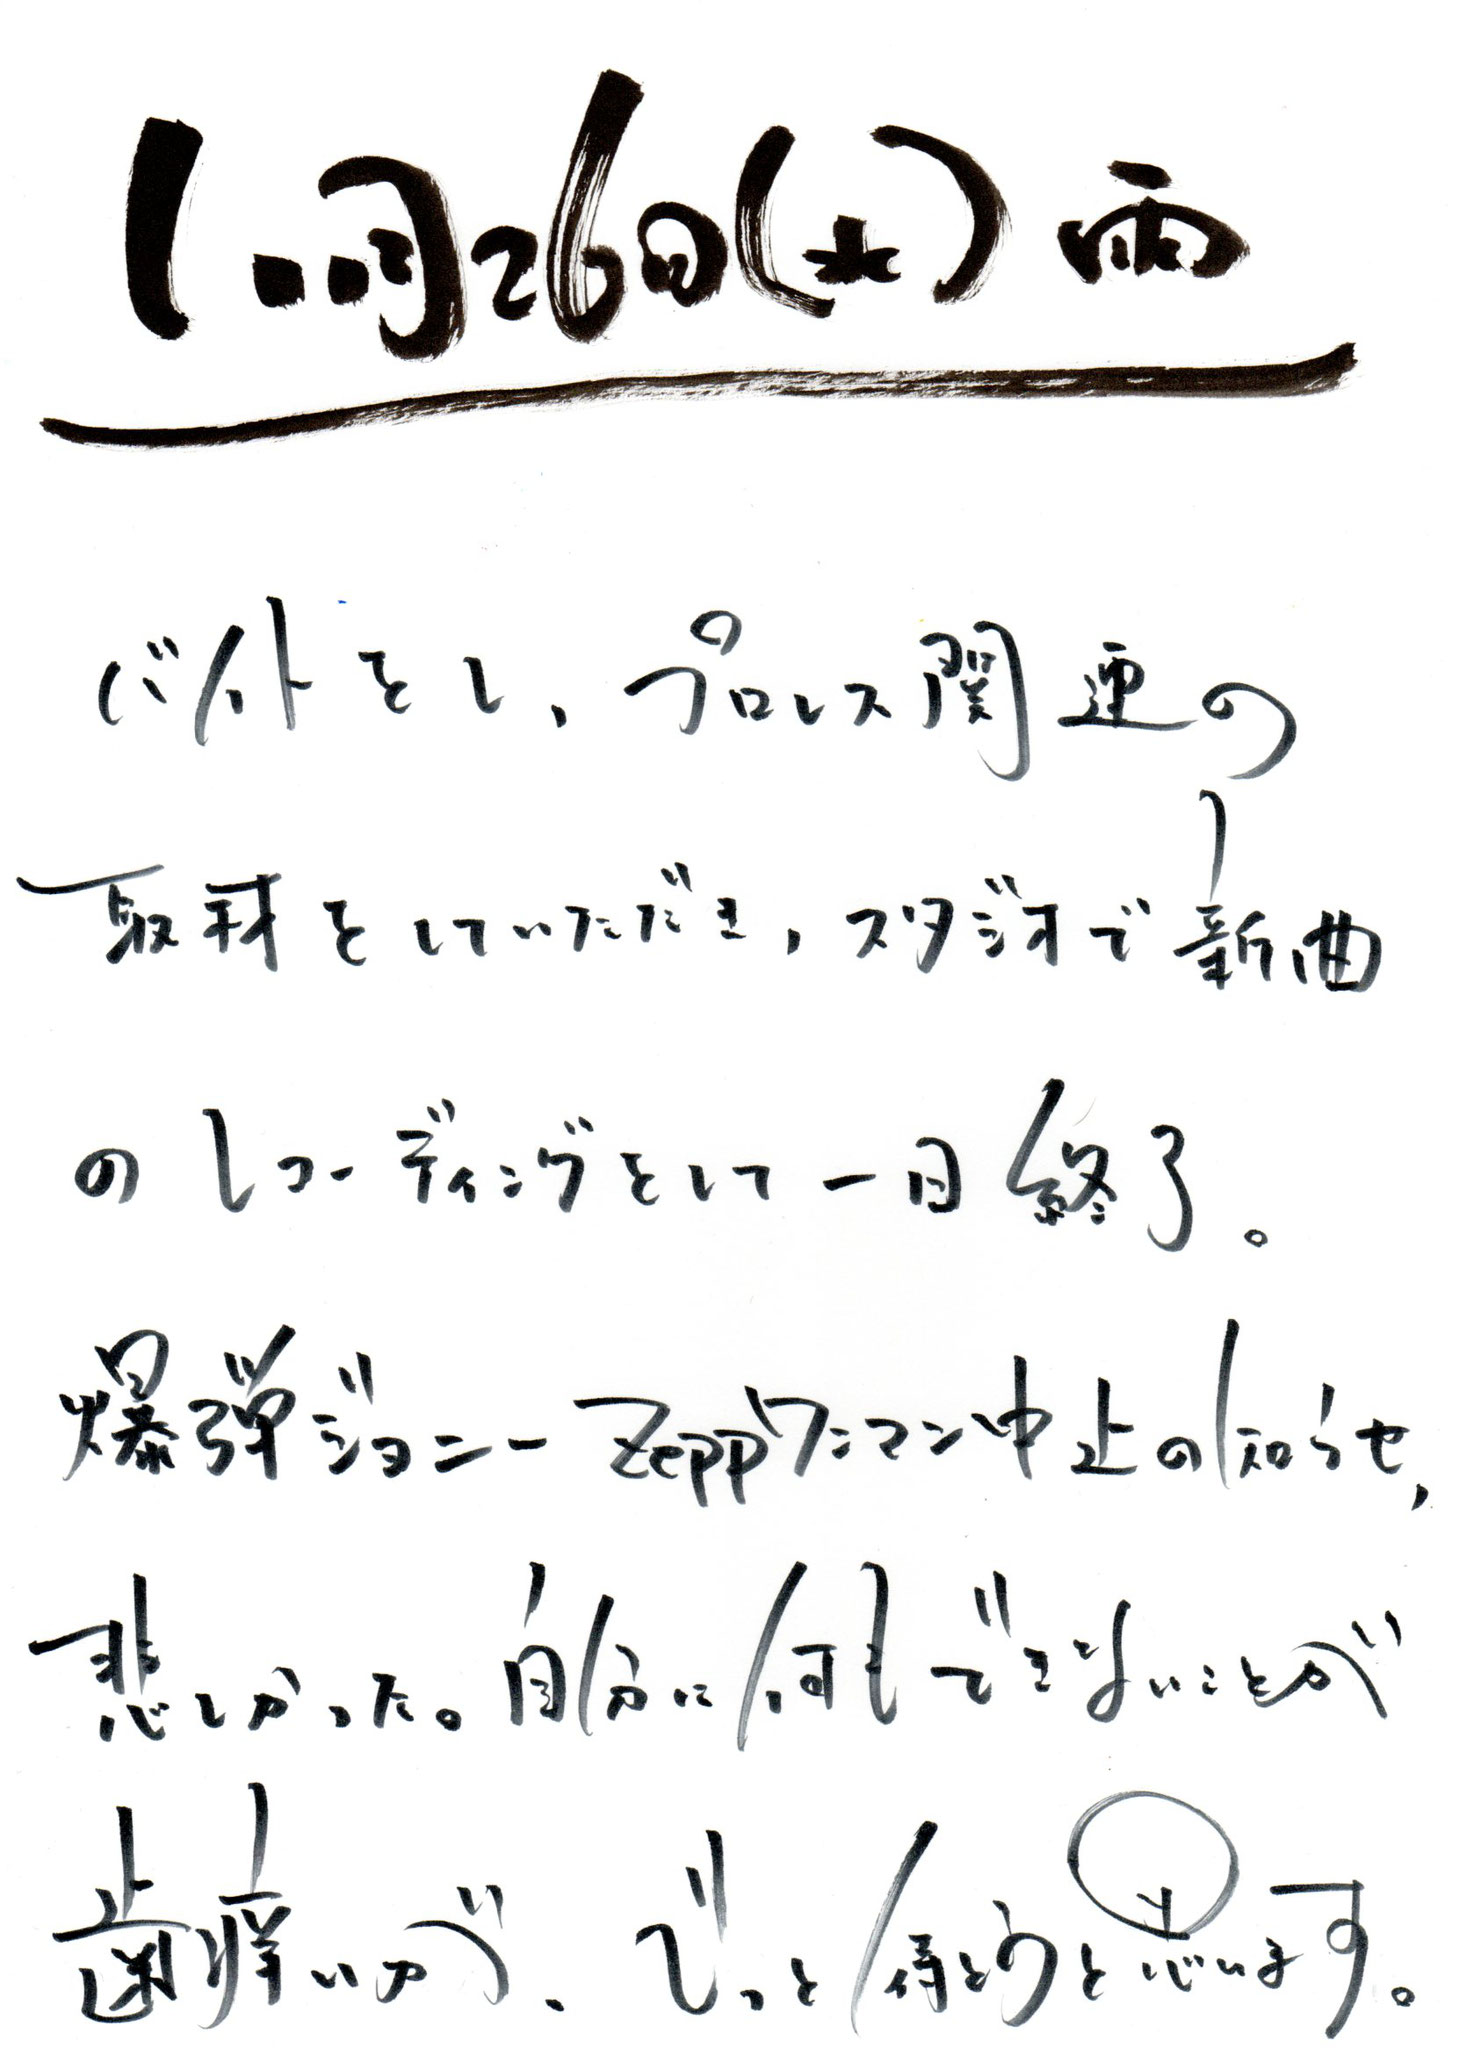 11月26日(水) 雨
バイトをし、プロレス関連の
取材をしていただき、スタジオで新曲
のレコーディングをして一日終了。
爆弾ジョニーZeppワンマン中止の知らせ、
悲しかった。自分に何もできないことが
歯痒いが、じっと待とうと思います。